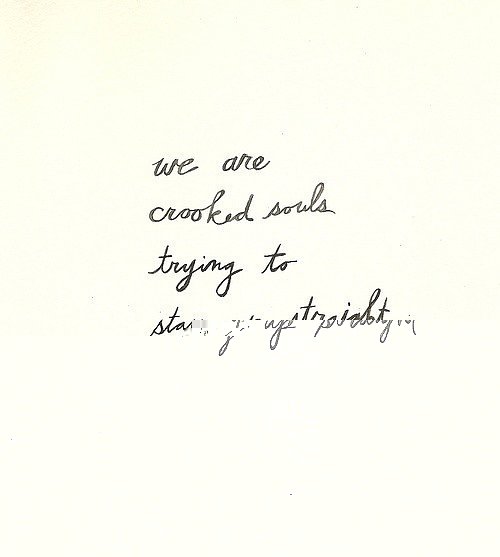 we are
crooked souls
trying to
up straight